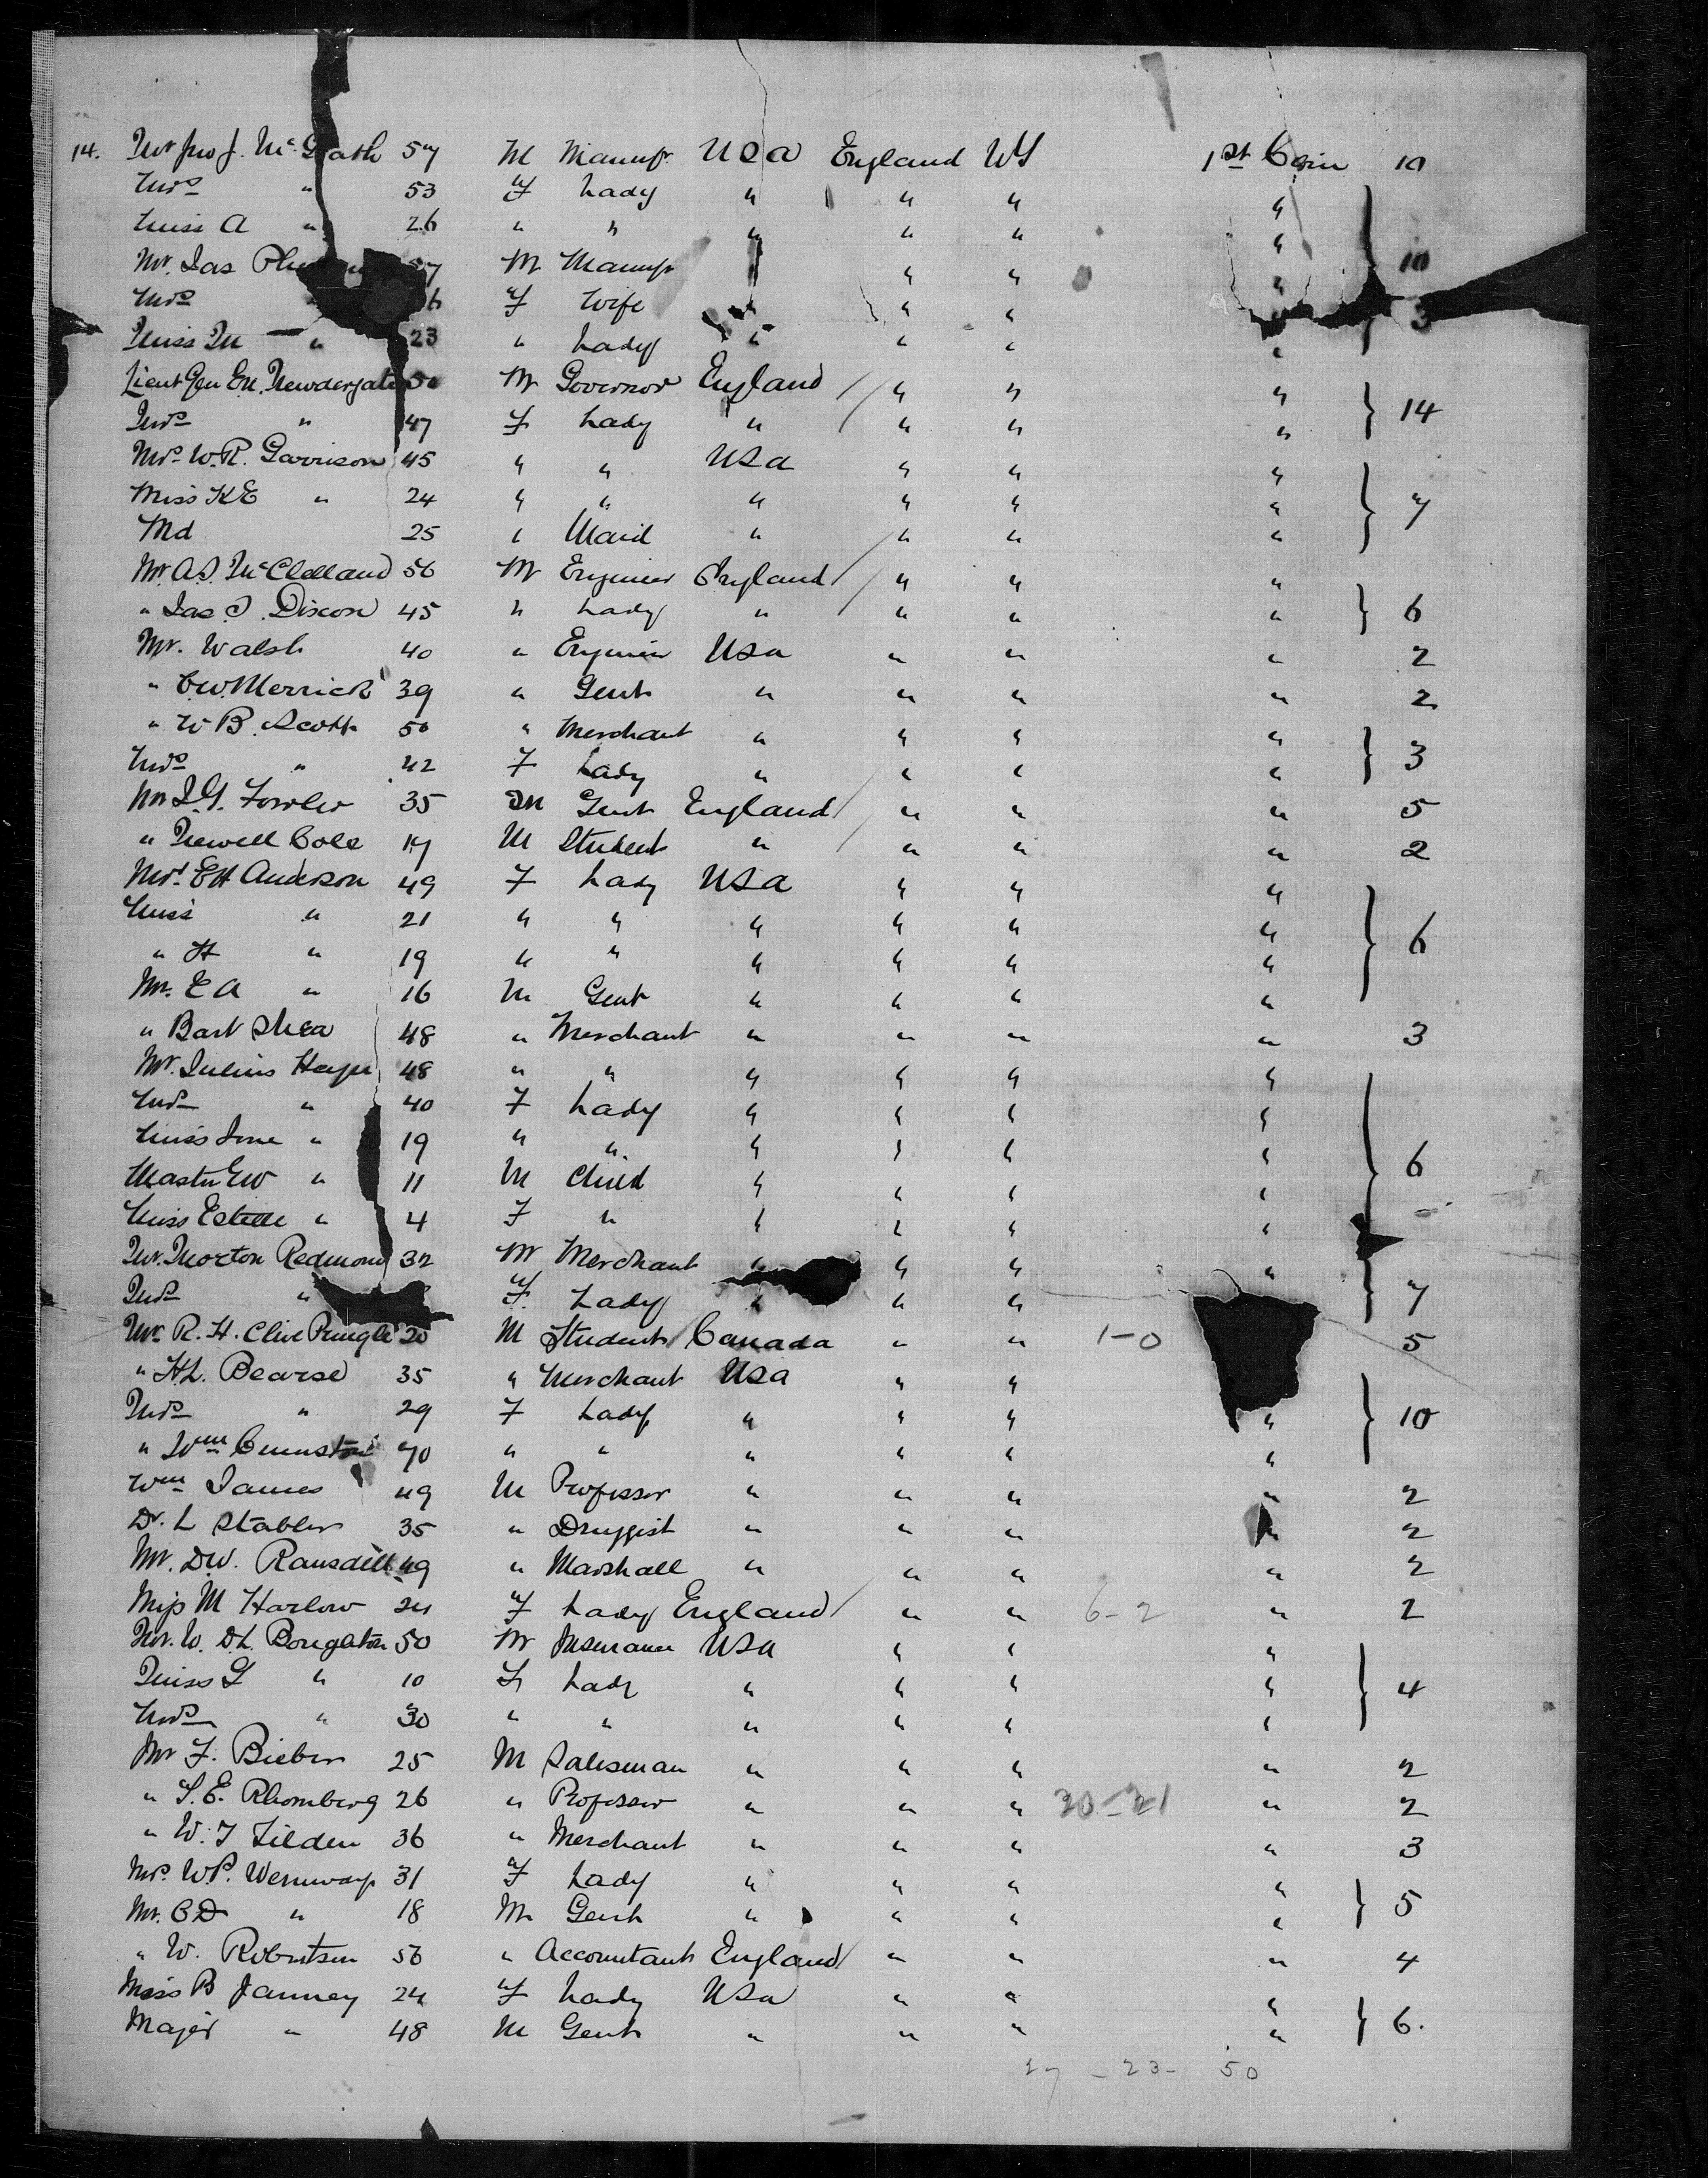 14. Mr Jno J. McGrath 57 M Manufr USA England US 1st Cabin 10
Mrs " 53 F Lady " " " "
Miss A " 26 " " " " " "
Mr. Jas 57 M Manufr " " " 10
Mrs 6 F Wife " " " 3
Miss M " 23 " Lady " " " "
Lieut Gen En. Newdergate 50 M Governor England " " " 14
Mrs " 47 F Lady " " " "
Mrs W.R. Garrison 45 " " USA " " "
Miss KE " 24 " " " " " " 7
Md 25 " Maid " " " "
Mr. A.S. McClelland 56 M Engineer England " " "
" Jas. S. Dixon 45 " Lady " " " " 6
Mr. Walsh 40 " Engineer USA " " " 2
" C.W. Merrick 39 " Gent " " " " 2
" W B. Scott 50 " Merchant " " " " 3
Mrs " 42 F Lady " " " "
Mr J.G. Fowler 35 M Gent England " " " 5
" Newell Cole 17 M Student " " " " 2
Mrs. EH Anderson 49 F Lady USA " " "
Miss " 21 " " " " " " 6
" H " 19 " " " " " "
Mr. E A " 16 M Gent " " " "
" Bart Shea 48 " Merchant " " " " 3
Mr. Julius 48 " " " " " "
Mrs " 40 F Lady " " " "
Miss " 19 " " " " " " 6
Master EW " 11 M Child " " " "
Miss Estelle " 4 F " " " " "
Mr. Morton Redmond 32 M Merchant " " " "
Mrs " F. Lady " " " 7
Mr. R. H. Clive Pringle 20 M Student Canada " " 1-0 5
" H.L. Bearse 35 " Merchant USA " "
Mrs " 29 F Lady " " " " 10
" Wm 70 " " " " " "
Wm James 49 M Professor " " " " 2
Dr. L Stabler 35 " Druggist " " " " 2
Mr. D.W. Ransdell 49 " Marshall " " " " 2
Miss M Harlow 24 F Lady England " " 6-2 " 2
Mr. W. D.L. Boughton 50 M Insurance USA " " "
Miss G " 10 F Lady " " " " 4
Mrs " 30 " " " " " "
Mr F. Bieber 25 M Salesman " " " " 2
" S. E. Rhomberg 26 " Professor " " " 20-21 " 2
" W. T Tilden 36 " Merchant " " " " 3
Mrs. W.P. 31 F Lady " " " "
Mr. C D " 18 M Gent " " " " 5
" W. Robertson 56 " Accountant England " " " 4
Miss B Janney 24 F Lady USA " " "
Major " 48 M Gent " " " " 6.
27 - 23 - 50